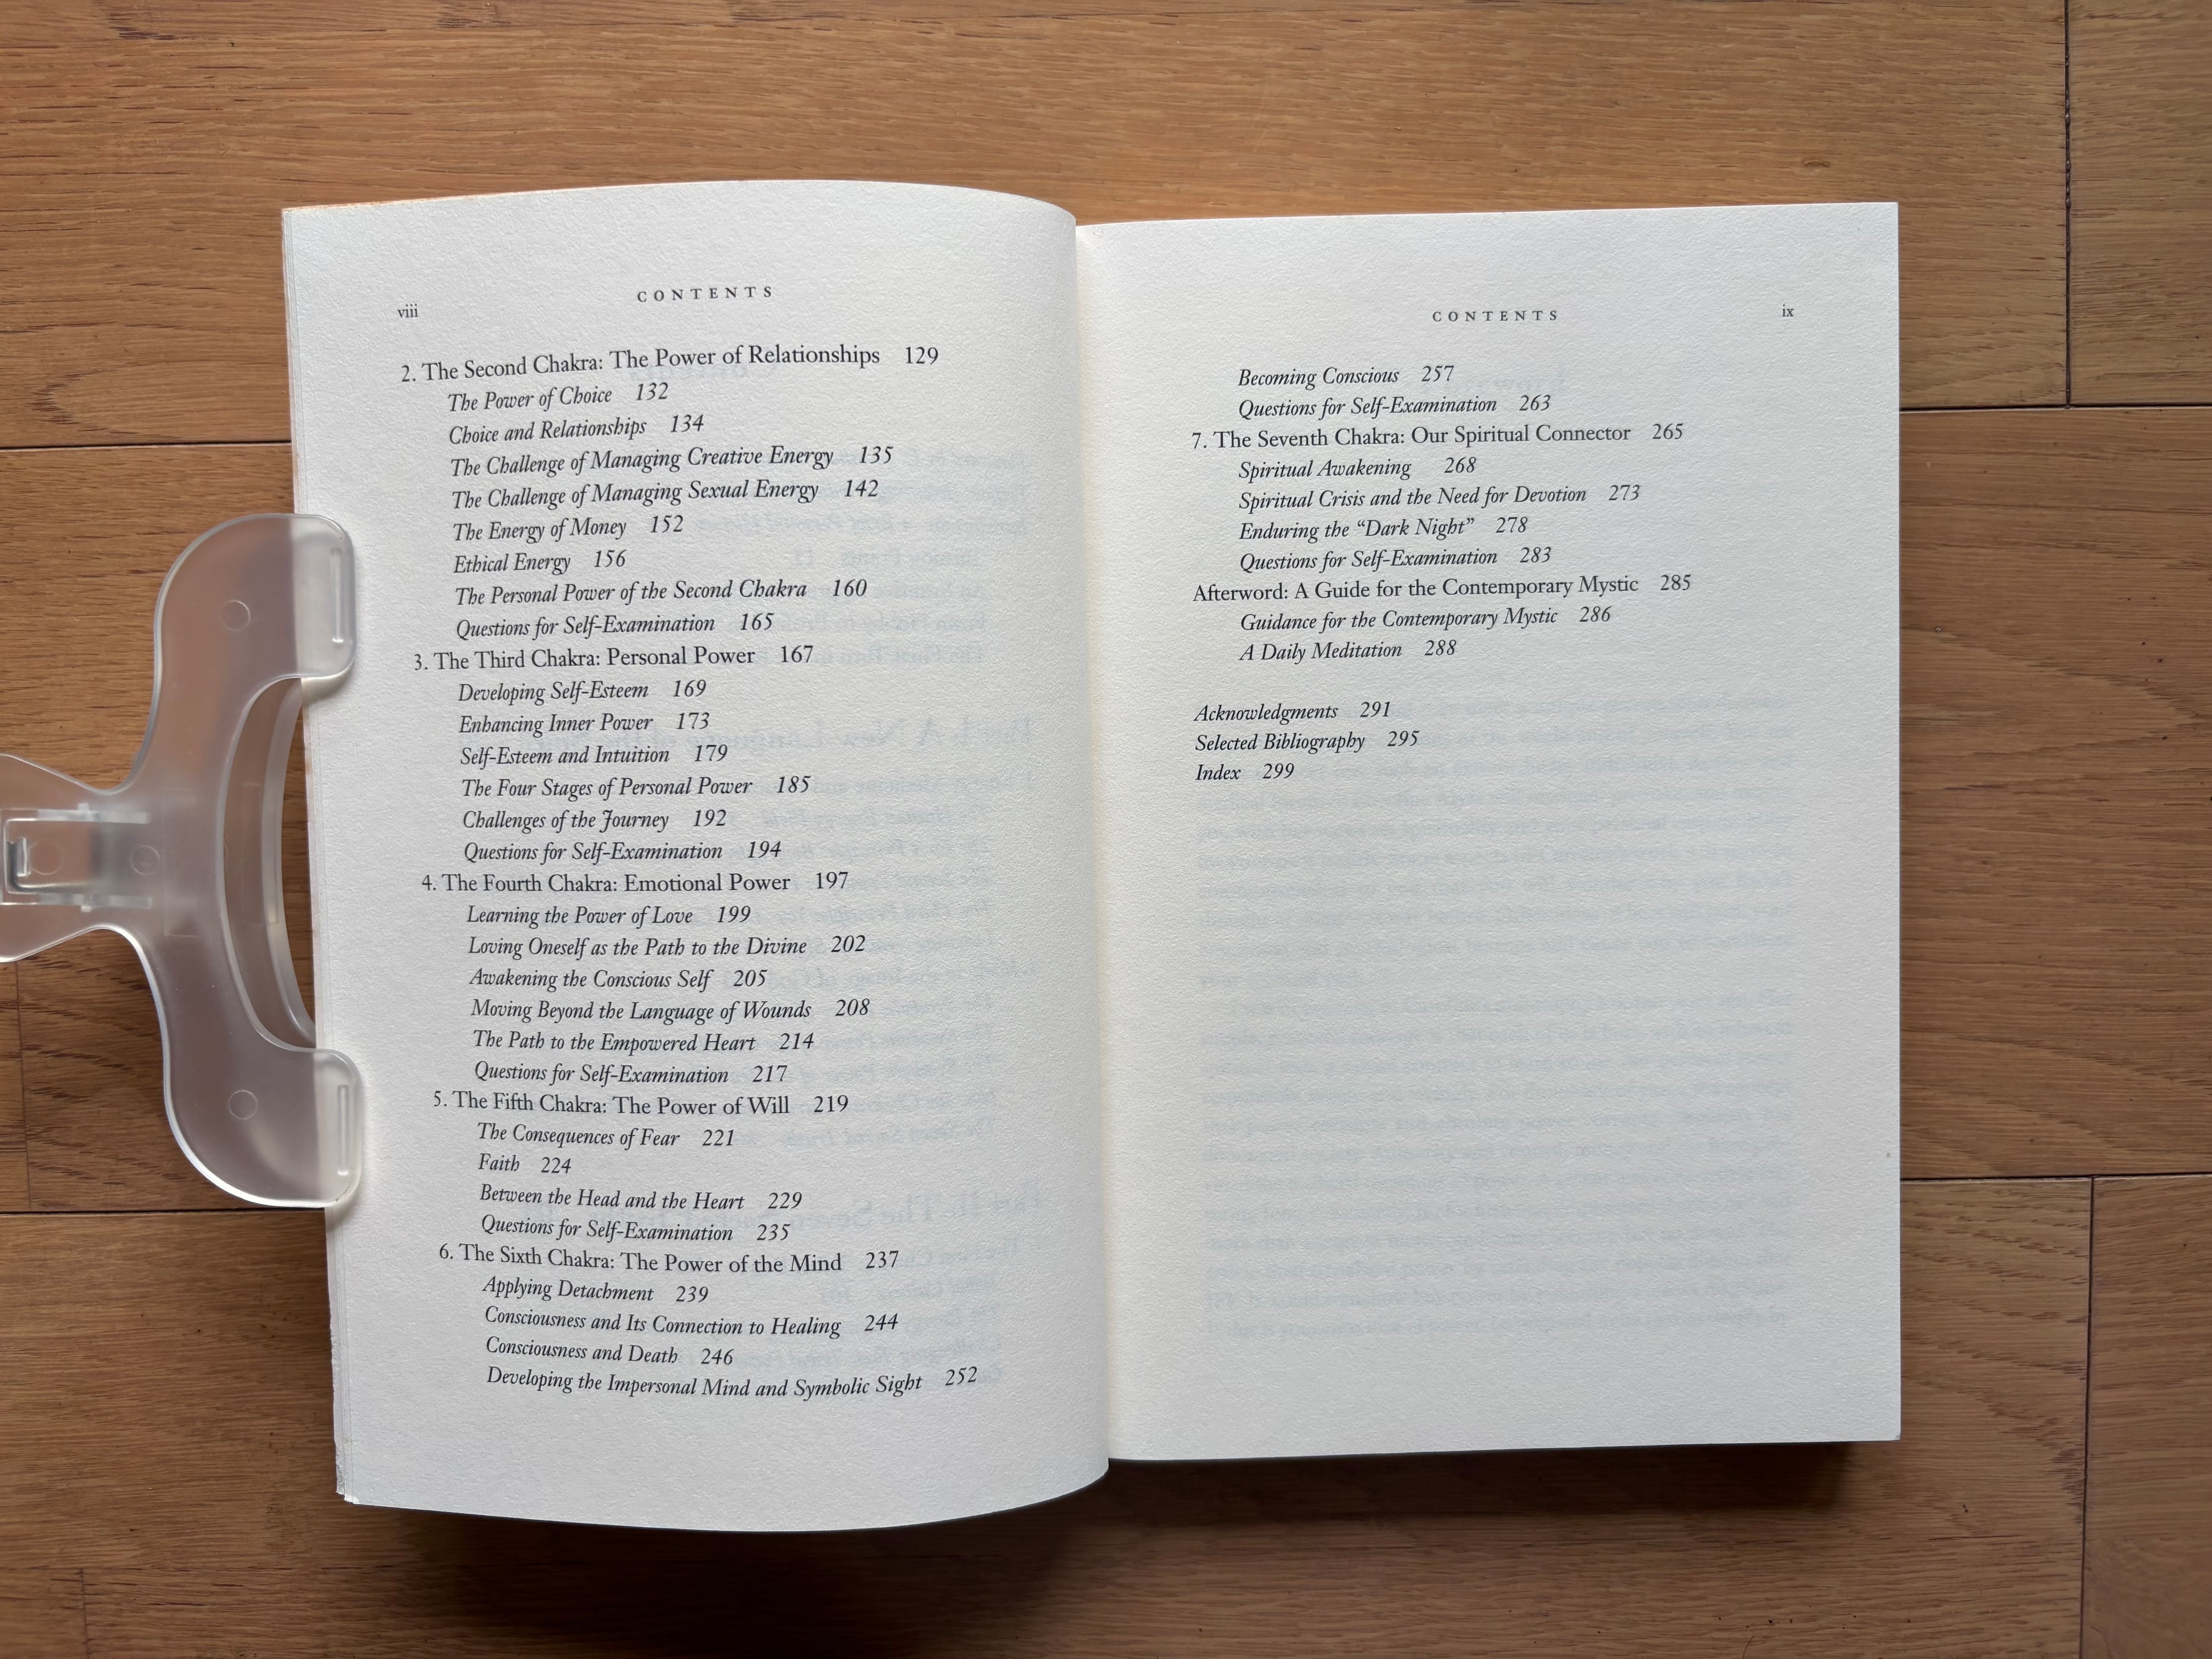 CONTENTS
viii
2. The Second Chakra: The Power of Relationships 129
The Power of Choice 132
Choice and Relationships 134
The Challenge of Managing Creative Energy 135
The Challenge of Managing Sexual Energy 142
The Energy of Money 152
Ethical Energy 156
The Personal Power of the Second Chakra 160
Questions for Self-Examination 165
3. The Third Chakra: Personal Power 167
Developing Self-Esteem 169
Enhancing Inner Power 173
Self-Esteem and Intuition 179
The Four Stages of Personal Power 185
Challenges of the Journey 192
Questions for Self-Examination 194
4. The Fourth Chakra: Emotional Power 197
Learning the Power of Love 199
Loving Oneself as the Path to the Divine 202
Awakening the Conscious Self 205
Moving Beyond the Language of Wounds 208
The Path to the Empowered Heart 214
Questions for Self-Examination 217
5. The Fifth Chakra: The Power of Will 219
The Consequences of Fear 221
Faith 224
Between the Head and the Heart 229
Questions for Self-Examination 235
6. The Sixth Chakra: The Power of the Mind 237
Applying Detachment 239
Consciousness and Its Connection to Healing 244
Consciousness and Death 246
Developing the Impersonal Mind and Symbolic Sight 252
CONTENTS ix
Becoming Conscious 257
Questions for Self-Examination 263
7. The Seventh Chakra: Our Spiritual Connector 265
Spiritual Awakening 268
Spiritual Crisis and the Need for Devotion 273
Enduring the “Dark Night” 278
Questions for Self-Examination 283
Afterword: A Guide for the Contemporary Mystic 285
Guidance for the Contemporary Mystic 286
A Daily Meditation 288
Acknowledgments 291
Selected Bibliography 295
Index 299